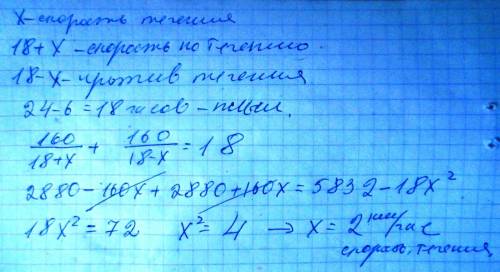 x - скорость течения
18+x - скорость по течению.
18-x - против течения
24-6=18 часов - плыл.
160/(18+x) + 160/(18-x) = 18
2880-160x+2880+160x=5832-18x²
18x²=72 x²=4 → x=2 км/час
скорость течения